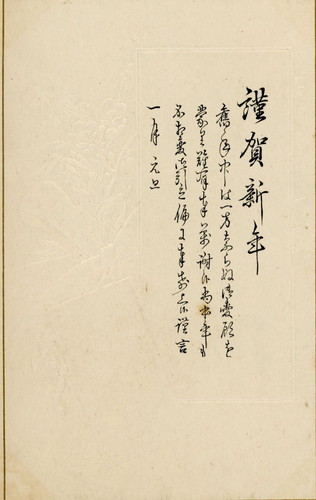 謹賀新年
舊年中は一方ならぬ御愛顧を
蒙り難有奉萬謝候尚本年も
不相変御引立偏に奉希上候謹言
一月元旦